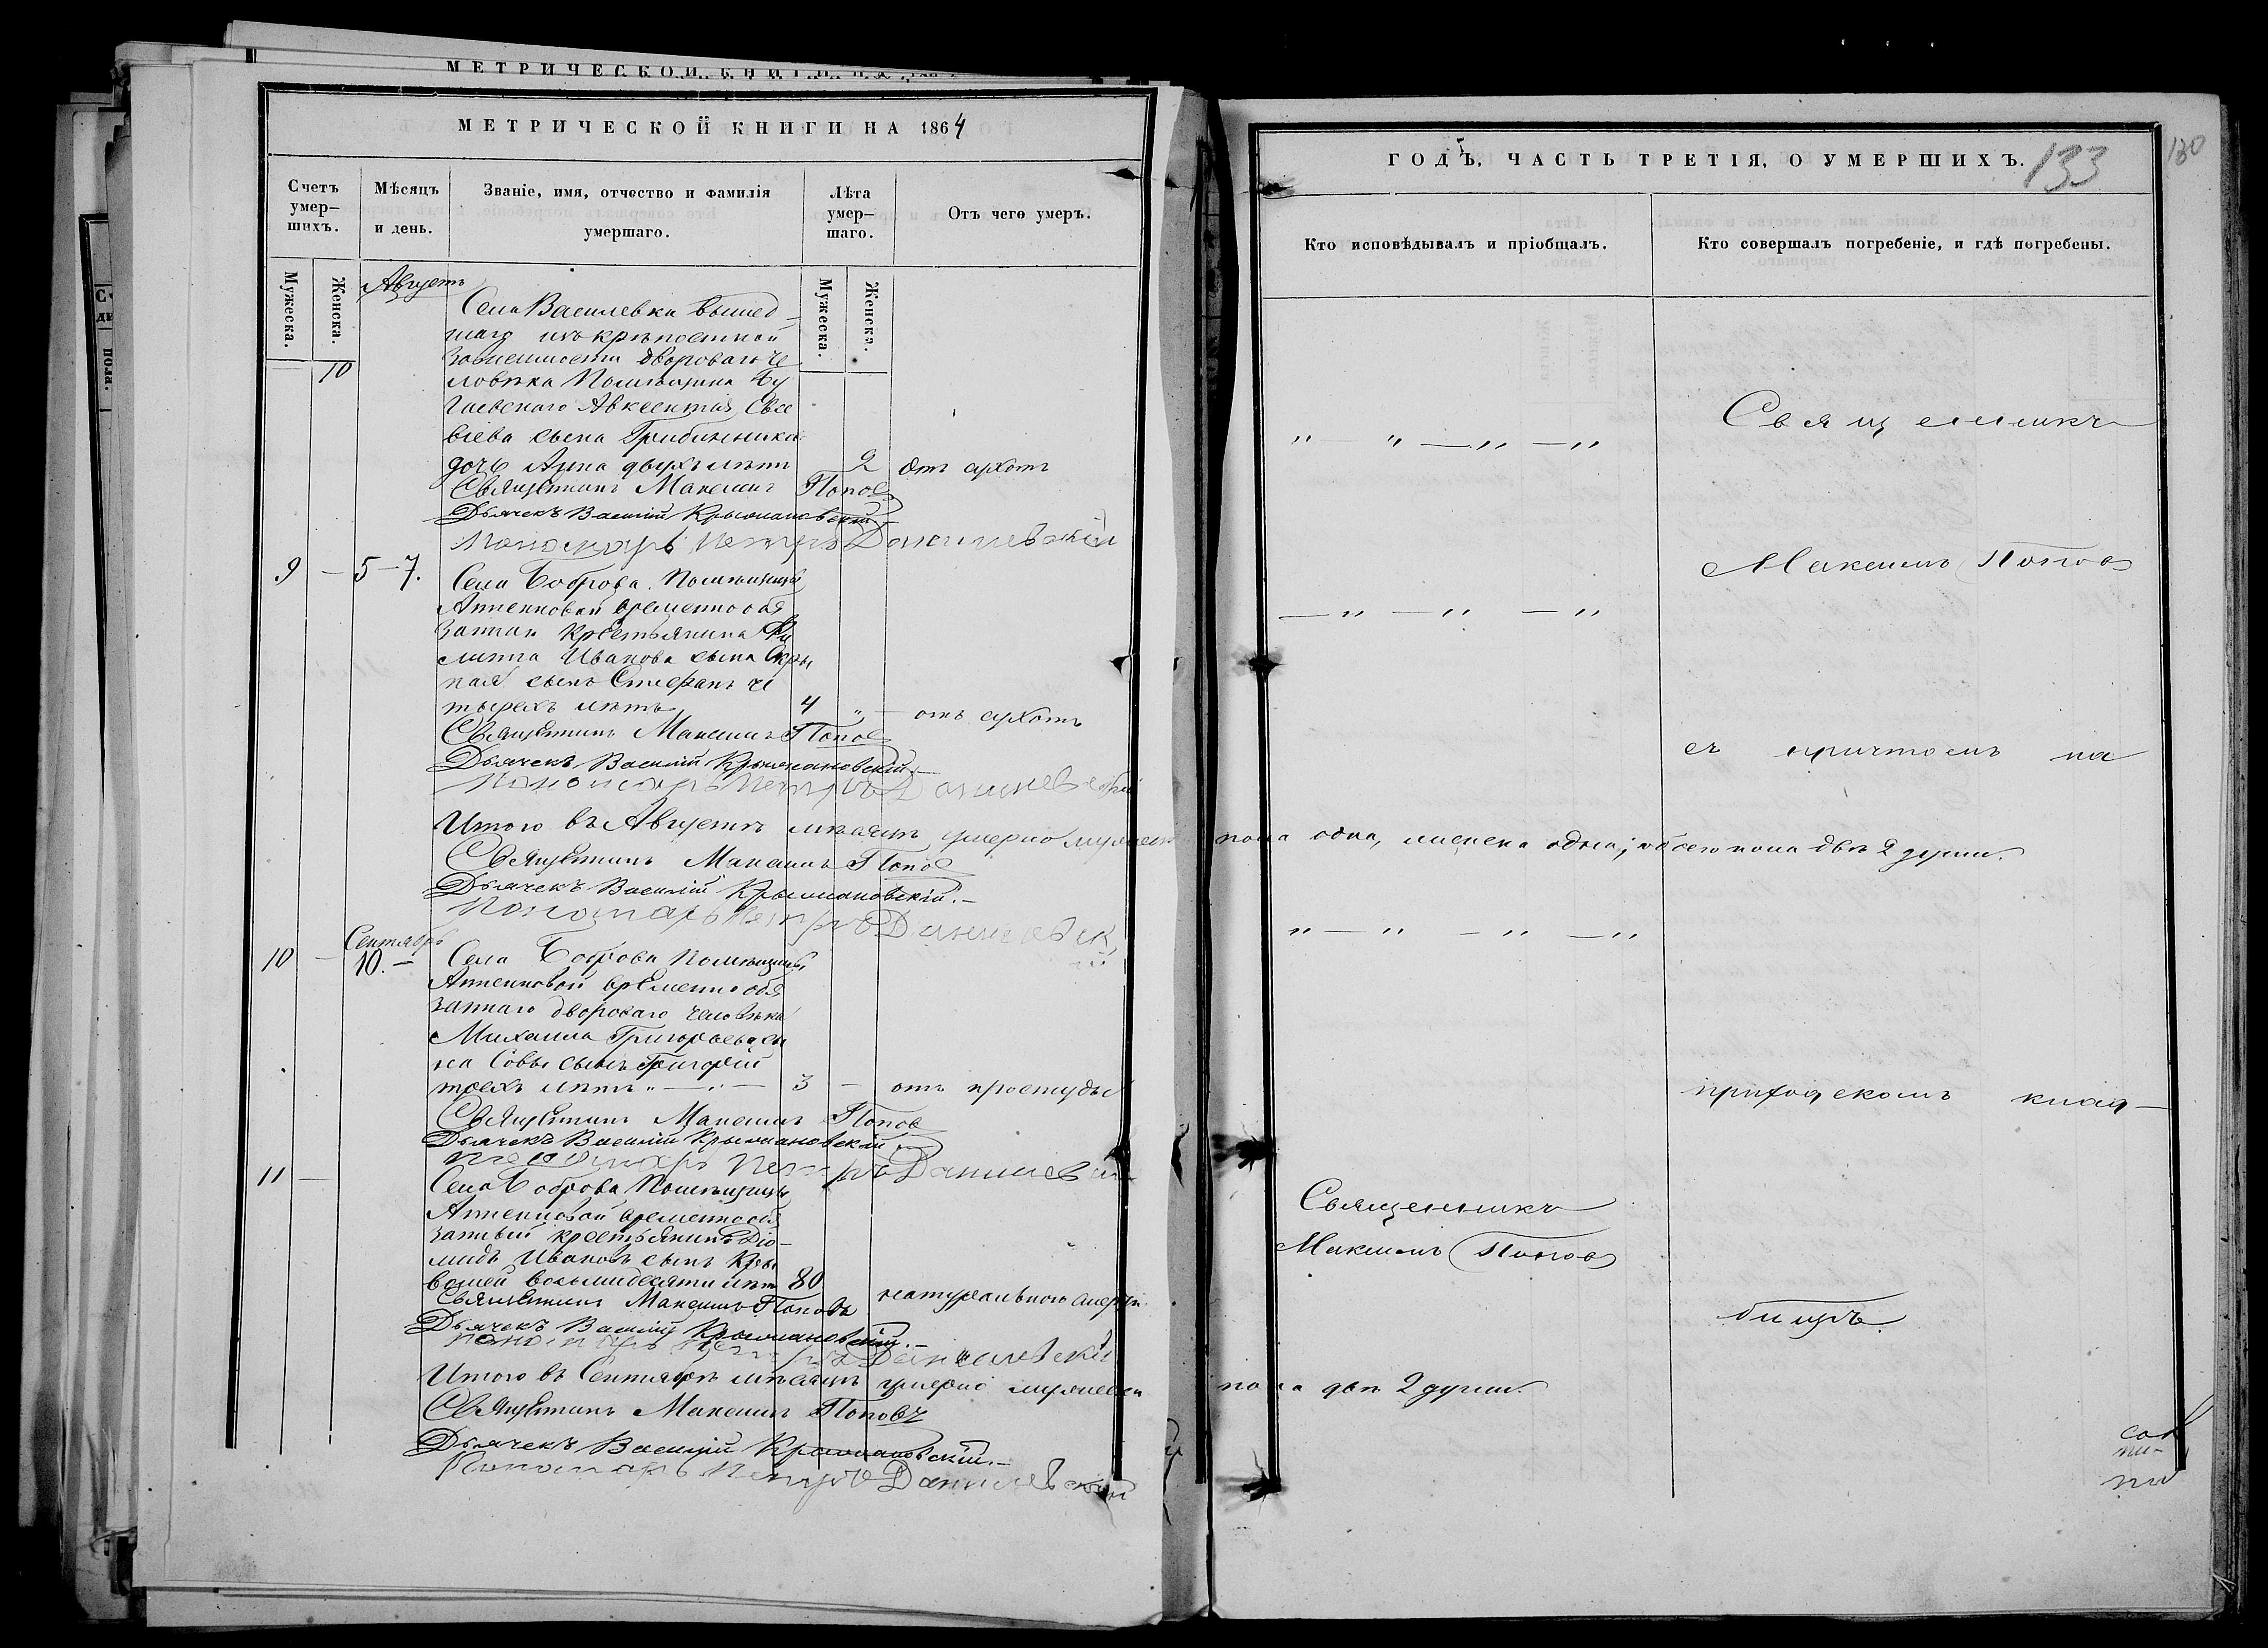 МЕТРИЧЕСКОЙ КНИГИ НА 1864
Счетъ умер-шихъ.
Мѣсяцъ и день.
Званіе, имя, отчество и фамилія умершаго.
Лѣта умер-шаго.
Отъ чего умеръ.
Мужеска.
Женска.
Мужеска.
Женска.
Августъ
10
Села Василевка вышед-
шаго изъ крѣпостной
зависимости двороваго че
ловѣка Помѣщика
Авксентія Евсе
віева сына
дочь Анна двухъ лѣтъ 2 отъ сухотъ
Священникъ Максимъ Попов
Дьячекъ Василій Крыжановскій
Пономарь Петръ Данилевскій
9 — 5 — 7.
Села Боброва Помѣщицы
Анненковой временно обя
заннаго крестьянина Фи
липпа Иванова сына
сынъ Стефанъ че
тырехъ лѣтъ 4 „ отъ сухотъ
Священникъ Максимъ Попов
Дьячекъ Василій Крыжановскій
Пономарь Петръ Данилевскій
Итого въ Августѣ мѣсяцѣ умерло мужеска
Священникъ Максимъ Попов
Дьячекъ Василій Крыжановскій.
Пономарь Петръ Данилевскій
Сентябрь
10 — 10. —
Села Боброва Помѣщицы
Анненковой временно обя
заннаго двороваго человѣка
Михаила Григорьева сы
на Совы сынъ Григорій
трехъ лѣтъ 3 — отъ простуды
Священникъ Максимъ Попов
Дьячекъ Василій Крыжановскій
Пономарь Петръ Данилевскій
11 —
Села Боброва Помѣщицы
Анненковой временно обя
занный крестьянинъ Діо-
мидъ Ивановъ сынъ
восьмидесяти лѣтъ 80 натуральною смертію
Священникъ Максимъ Поповъ
Дьячекъ Василій Крыжановскій.
Пономарь Петръ Данилевскій
Итого въ Сентябрѣ мѣсяцѣ умерло мужеска
Священникъ Максимъ Поповъ
Дьячекъ Василій Крыжановскій.
Пономарь Петръ Данилевскій
ГОДЪ, ЧАСТЬ ТРЕТІЯ, О УМЕРШИХЪ.
133
130
Кто исповѣдывалъ и пріобщалъ.
Кто совершалъ погребеніе, и гдѣ погребены.
Священникъ
Максимъ Попов
съ причтомъ на
пола одна, женска одна; обоего пола двѣ 2 души.
приходскомъ клад-
Священникъ
Максимъ Попов
бищѣ.
пола двѣ 2 души.